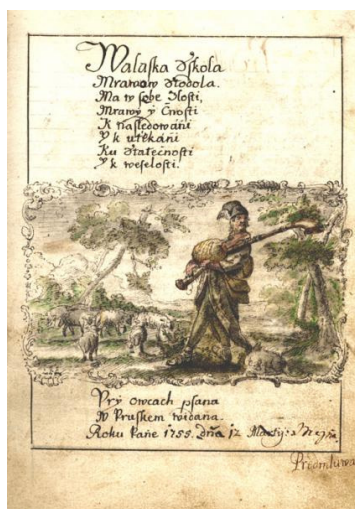 Walaska Sskola
Mrawuw Stodola.
Ma w sobe Zlosti,
Mrawy y Cnosti
K nasledowáni
Y k utěkáni
Ku Statečnosti
Y k weselosti.
Pry owcach psana
W Pruskem widana.
Roku Pane 1755. dňa 12 Martij:
Predmluwa